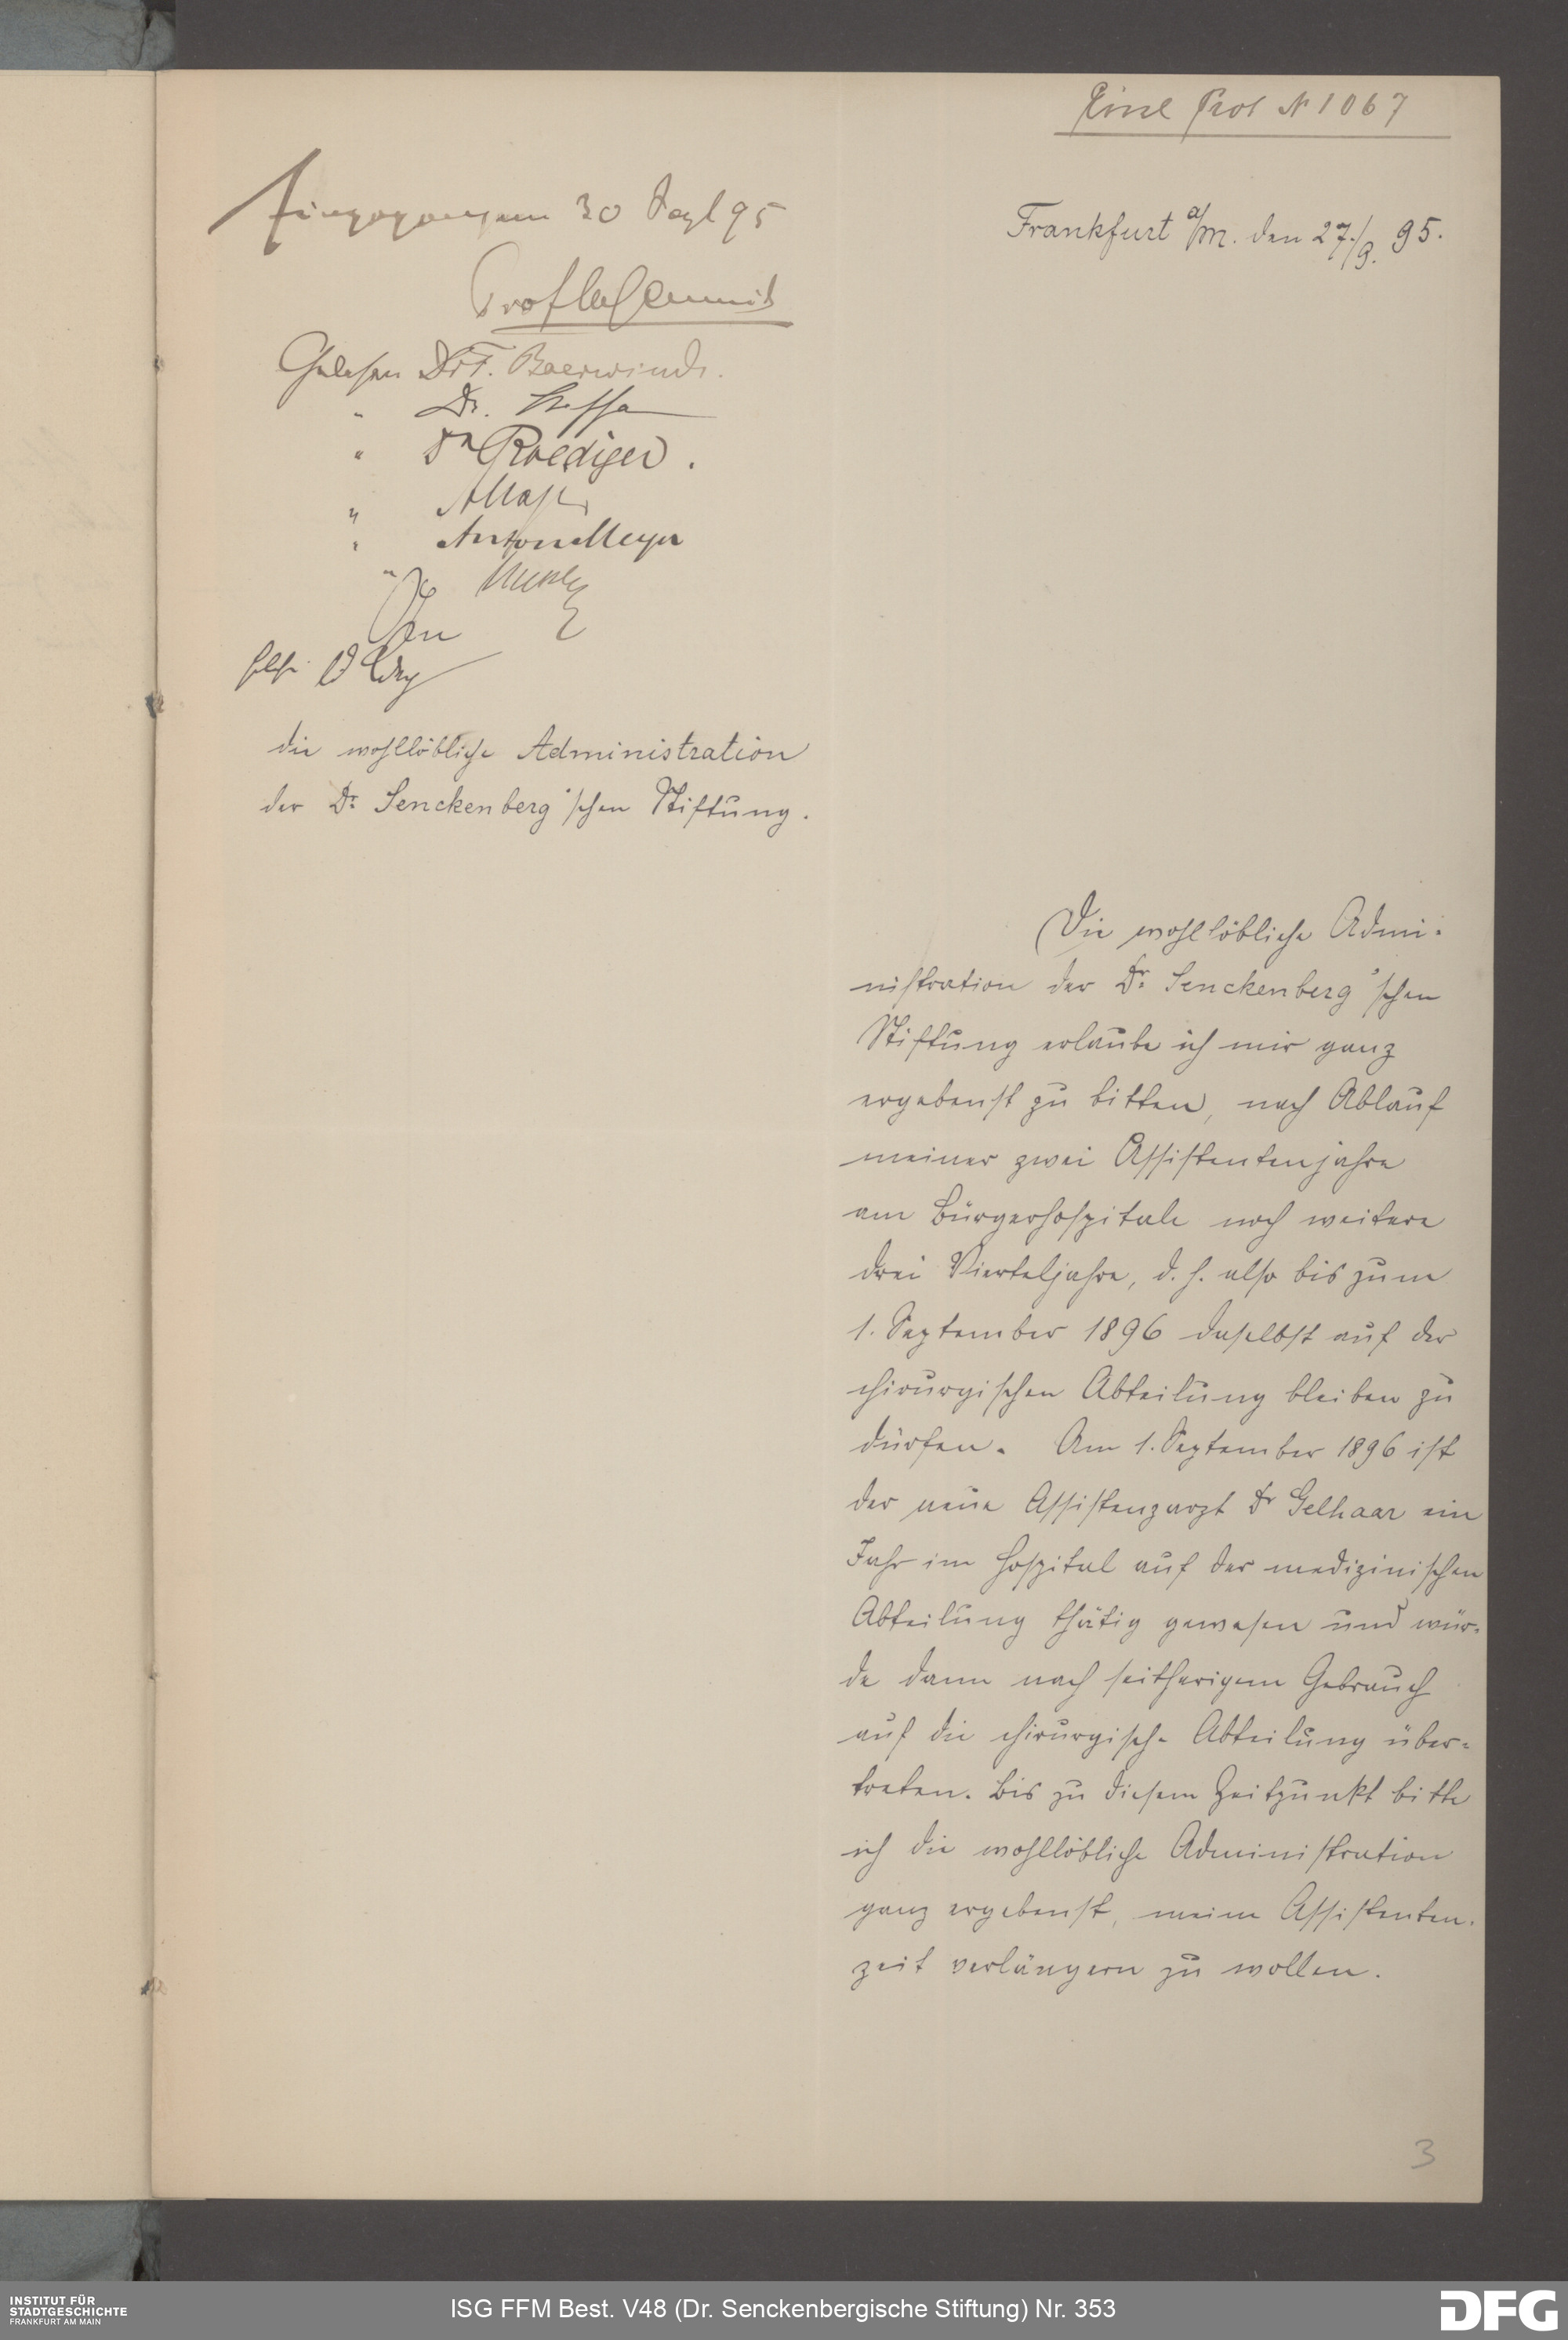 Prot N 1067
Eingegangen 30 Sept 95
Frankfurt a/M. den 27./9. 95.
Gelesen Dr F. Baerwindt.
" Dr.
" Dr Roediger.
"
" Anton Meyer
"
die wohllöbliche Administration
der Dr. Senckenberg'schen Stiftung.
Die wohllöbliche Admi-
nistration der Dr. Senckenberg'schen
Stiftung erlaube ich mir ganz
ergebenst zu bitten, nach Ablauf
meiner zwei Assistentenjahre
am Bürgerhospitale noch weitere
drei Vierteljahre, d. h. also bis zum
1. September 1896 daselbst auf der
chirurgischen Abteilung bleiben zu
dürfen. Am 1. September 1896 ist
der neue Assistenzarzt Dr Gelhaar ein
Jahr im Hospital auf der medizinischen
Abteilung thätig gewesen und wür-
de dann nach seitherigem Gebrauch
auf die chirurgische Abteilung über-
treten. Bis zu diesem Zeitpunkt bitte
ich die wohllöbliche Administration
ganz ergebenst, meine Assistenten-
zeit verlängern zu wollen.
3
INSTITUT FÜR
STADTGESCHICHTE
FRANKFURT AM MAIN
ISG FFM Best. V48 (Dr. Senckenbergische Stiftung) Nr. 353
DFG